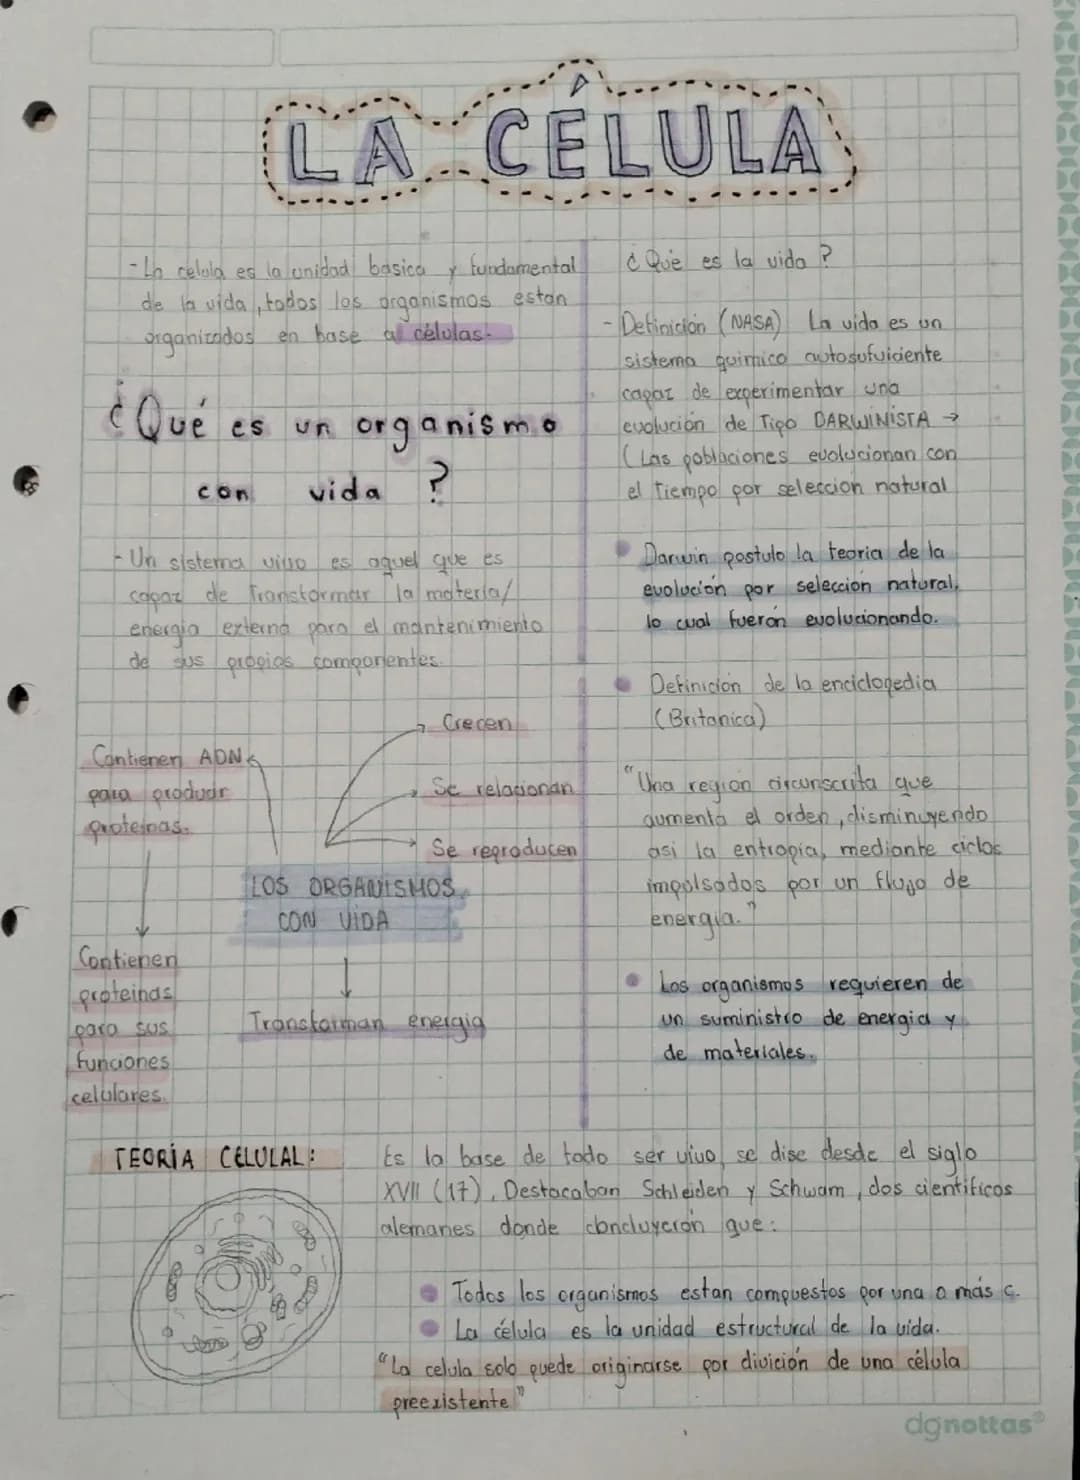 LA CÉLULA
- La celula es la unidad basica y fundamental
de la vida, todos los organismos estan
organizados en base a células.
¿Qué es un organismo
con vida ?
- Un sistema vivo es aquel que es
capaz de Transformar la materia/
energia externa para el mantenimiento
de sus propios componentes.
Crecen
Se relacionan
Se reproducen
Contienen ADN
para producir
proteinas.
LOS ORGANISMOS
CON VIDA
Contienen
proteinas
para sus
funciones
celulares.
Transforman energia
¿Qué es la vida?
- Definición (NASA) La vida es un
sistema quimico autosufuiciente
capaz de experimentar una
evolución de Tipo DARWINISTA →
(Las poblaciones evolucionan con
el Tiempo por seleccion natural
Darwin postulo la teoria de la
evolución por selección natural,
lo cual fuerón evolucionando.
Definición de la enciclopedia
(Britanica)
"Una region circunscrita que
aumenta el orden, disminuyendo
asi la entropia, mediante ciclos
impulsados por un flujo de
energia."
Los organismos requieren de
un suministro de energia y
de materiales.
TEORÍA CELULAL:
Es la base de todo ser vivo, se dise desde el siglo
XVII (17), Destacaban Schleiden y Schwam, dos cientificos
alemanes donde concluyerón que:
Todos los organismos estan compuestos por una o más c.
La célula es la unidad estructural de la vida.
"La celula solo puede originarse por divición de una célula
preexistente"
dgnottas®